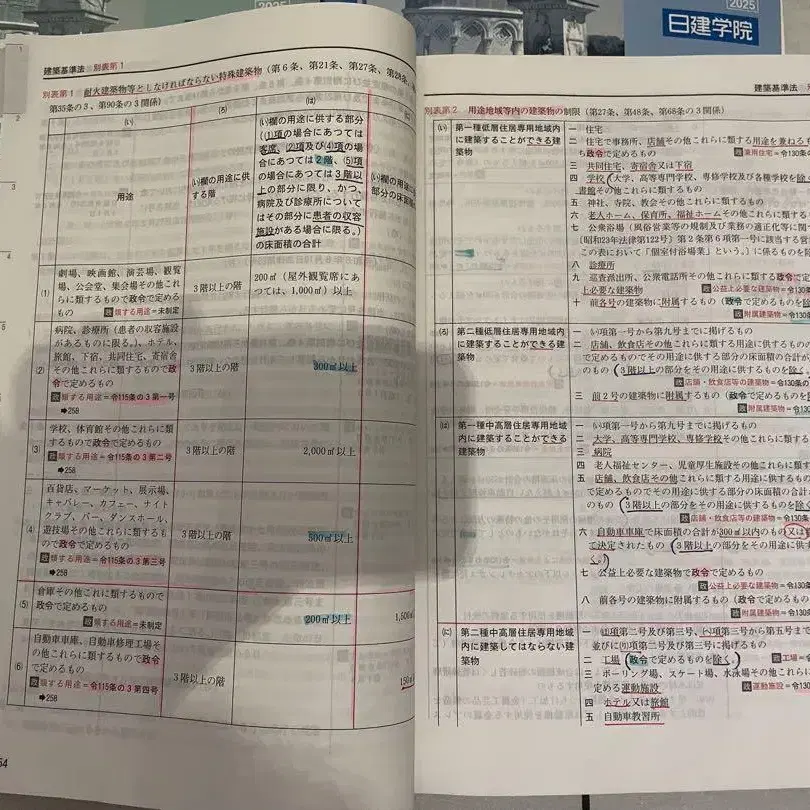 2025
2025
日建学院
建築基準法 別表第1
別表第1 耐火建築物等としなければならない特殊建築物（第6条、第21条、第27条、第28条、
第35条の3、第90条の3関係）
(い)
(ろ)
(は)
用途
(い)欄の用途に供
する階
(い)欄の用途に供する部分
（(1)項の場合にあつては
客席、(2)項及び(4)項の場
合にあつては2階、(5)項
の場合にあつては3階以
上の部分に限り、かつ、
病院及び診療所について
はその部分に患者の収容
施設がある場合に限る。）
の床面積の合計
(い)欄の用途に
部分の床面積
(1)
劇場、映画館、演芸場、観覧
場、公会堂、集会場その他これ
らに類するもので政令で定める
もの
類する用途＝未制定
3階以上の階
200㎡（屋外観覧席にあ
つては、1,000㎡）以上
(2)
病院、診療所（患者の収容施設
があるものに限る。）、ホテル、
旅館、下宿、共同住宅、寄宿舎
その他これらに類するもので政
令で定めるもの
類する用途＝令115条の3第一号
➡258
3階以上の階
300㎡以上
(3)
学校、体育館その他これらに類
するもので政令で定めるもの
類する用途＝令115条の3第二号
➡258
3階以上の階
2,000㎡以上
(4)
百貨店、マーケット、展示場、
キャバレー、カフェー、ナイト
クラブ、バー、ダンスホール、
遊技場その他これらに類するも
ので政令で定めるもの
類する用途＝令115条の3第三号
➡258
3階以上の階
500㎡以上
(5)
倉庫その他これらに類するもので
政令で定めるもの
類する用途＝未制定
200㎡以上
1,500㎡
(6)
自動車車庫、自動車修理工場そ
の他これらに類するもので政令
で定めるもの
類する用途＝令115条の3第四号
➡258
3階以上の階
150㎡
54
建築基準法
別表第2 用途地域等内の建築物の制限（第27条、第48条、第68条の3関係）
(い)
第一種低層住居専用地域内
に建築することができる建
築物
一 住宅
二 住宅で事務所、店舗その他これらに類する用途を兼ねるも
ち政令で定めるもの
兼用住宅＝令130条
三 共同住宅、寄宿舎又は下宿
四 学校（大学、高等専門学校、専修学校及び各種学校を除く
書館その他これらに類するもの
五 神社、寺院、教会その他これらに類するもの
六 老人ホーム、保育所、福祉ホームその他これらに類する
七 公衆浴場（風俗営業等の規制及び業務の適正化等に関
（昭和23年法律第122号）第2条第6項第一号に該当する営
この表において「個室付浴場業」という。）に係るものを除
八 診療所
九 巡査派出所、公衆電話所その他これらに類する政令で定
上必要な建築物
公益上必要な建築物＝令130条
十 前各号の建築物に附属するもの（政令で定めるものを除
附属建築物＝令130条
(ろ)
第二種低層住居専用地域内
に建築することができる建
築物
一 (い)項第一号から第九号までに掲げるもの
二 店舗、飲食店その他これらに類する用途に供するもの
で定めるものでその用途に供する部分の床面積の合計が
のもの（3階以上の部分をその用途に供するものを除く。
店舗・飲食店等の建築物＝令130条
三 前2号の建築物に附属するもの（政令で定めるものを
附属建築物＝令130
(は)
第一種中高層住居専用地域
内に建築することができる
建築物
一 (い)項第一号から第九号までに掲げるもの
二 大学、高等専門学校、専修学校その他これらに類す
三 病院
四 老人福祉センター、児童厚生施設その他これらに類
五 店舗、飲食店その他これらに類する用途に供するもの
で定めるものでその用途に供する部分の床面積の合計
のもの（3階以上の部分をその用途に供するものを除く
店舗・飲食店等の建築物＝令130
六 自動車車庫で床面積の合計が300㎡以内のもの又は
て決定されたもの（3階以上の部分をその用途に供
く。）
七 公益上必要な建築物で政令で定めるもの
公益上必要な建築物＝令130
八 前各号の建築物に附属するもの（政令で定めるもの
附属建築物＝令130
(に)
第二種中高層住居専用地域
内に建築してはならない建
築物
一 (ほ)項第二号及び第三号、(へ)項第三号から第五号まで
並びに(り)項第二号及び第三号に掲げるもの
二 工場（政令で定めるものを除く。）
工場＝令
三 ボーリング場、スケート場、水泳場その他これらに
定める運動施設
運動施設＝令130
四 ホテル又は旅館
五 自動車教習所